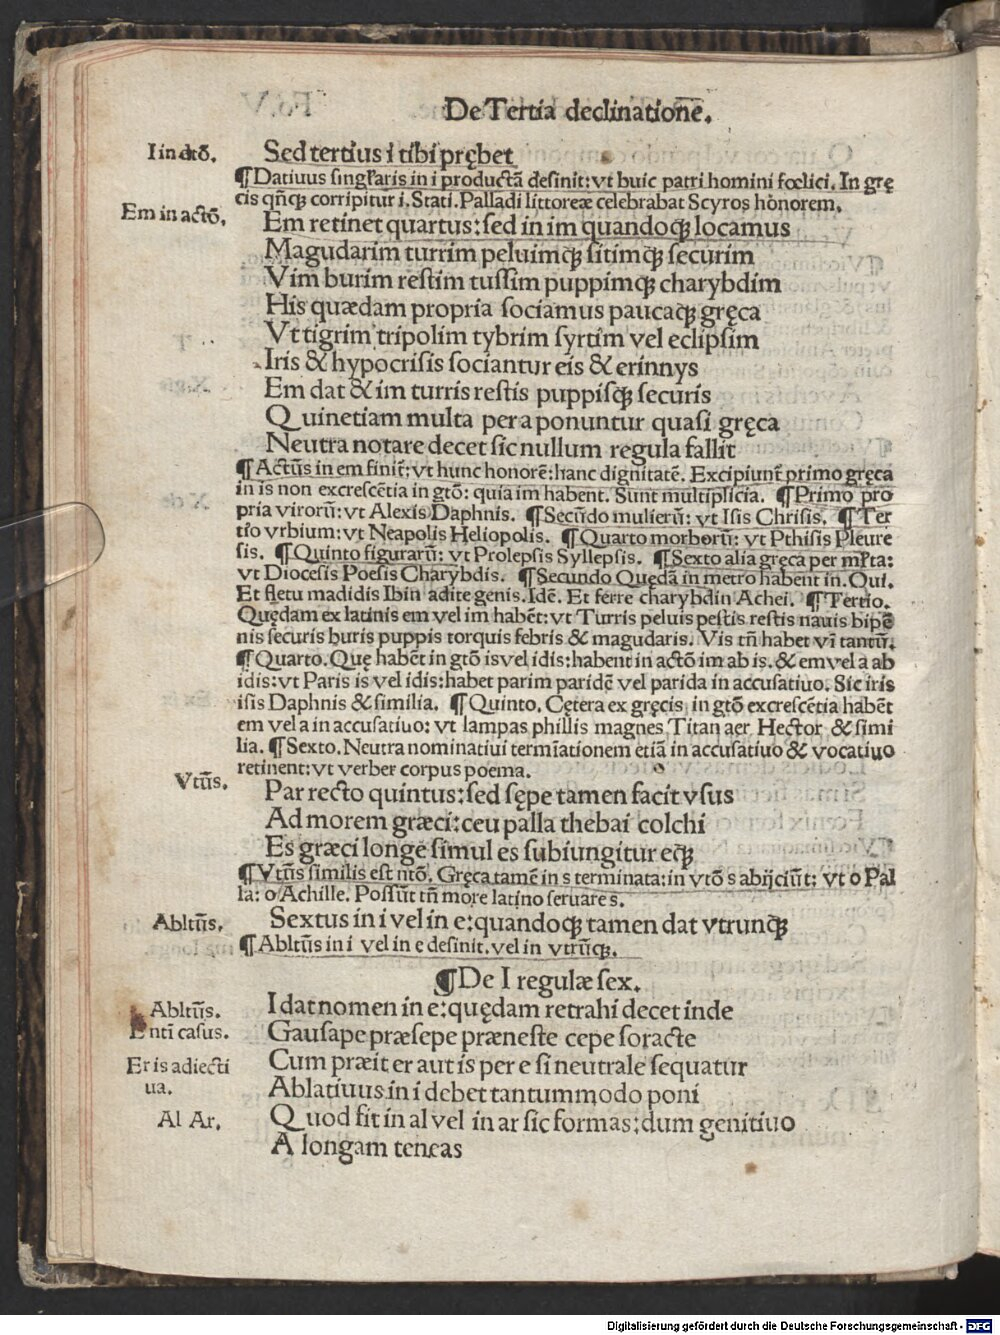 De Tertia declinatione.
I in dtō. Sed tertius i tibi prębet
¶ Datiuus singl'aris in i productā desinit: vt huic patri homini fœlici. In grę
cis qn̄q; corripitur i. Stati. Palladi littoreæ celebrabat Scyros honorem.
Em in actō. Em retinet quartus: sed in im quandoq; locamus
Magudarim turrim peluimq; sitimq; securim
Vim burim restim tussim puppimq; charybdim
His quædam propria sociamus paucaq; gręca
Vt tigrim tripolim tybrim syrtim vel eclipsim
Iris & hypocrisis sociantur eis & erinnys
Em dat & im turris restis puppisq; securis
Quinetiam multa per a ponuntur quasi gręca
Neutra notare decet sic nullum regula fallit
¶ Actūs in em finit̄: vt hunc honorē: hanc dignitatē. Excipiunt̄ primo gręca
in is non excrescētia in gtō: quia im habent. Sunt multiplicia. ¶ Primo pro
pria virorū: vt Alexis Daphnis. ¶ Secūdo mulierū: vt Isis Chrisis. ¶ Ter
tio vrbium: vt Neapolis Heliopolis. ¶ Quarto morborū: vt Pthisis Pleure
sis. ¶ Quinto figurarū: vt Prolepsis Syllepsis. ¶ Sexto alia gręca per ml'ta:
vt Diocesis Poesis Charybdis. ¶ Secundo Quędā in metro habent in. Oui.
Et fletu madidis Ibin adite genis. Idē. Et ferre charybdin Achei. ¶ Tertio.
Quędam ex latinis em vel im habēt: vt Turris peluis pestis restis nauis bipē
nis securis buris puppis torquis febris & magudaris. Vis tn̄ habet vī tantū.
¶ Quarto. Quę habēt in gtō is vel idis: habent in actō im ab is. & em vel a ab
idis: vt Paris is vel idis: habet parim paridē vel parida in accusatiuo. Sic iris
isis Daphnis & similia. ¶ Quinto. Cętera ex gręcis in gtō excrescētia habēt
em vel a in accusatiuo: vt lampas phillis magnes Titan aer Hector & simi
lia. ¶ Sexto. Neutra nominatiui termīationem etiā in accusatiuo & vocatiuo
retinent: vt verber corpus poema.
Vtūs. Par recto quintus: sed sępe tamen facit vsus
Ad morem græci: ceu palla thebai colchi
Es græci longe simul es subiungitur eq;
¶ Vtūs similis est ntō. Gręca tamē in s terminata: in vtō s abijciūt: vt o Pal
la: o Achille. Possūt tn̄ more latino seruare s.
Abltūs. Sextus in i vel in e: quandoq; tamen dat vtrunq;
¶ Abltūs in i vel in e desinit. vel in vtrūq;.
¶ De I regulæ sex.
Abltūs. I dat nomen in e: quędam retrahi decet inde
E nti casus. Gausape præsepe præneste cepe soracte
Er is adiecti Cum præit er aut is per e si neutrale sequatur
ua. Ablatiuus in i debet tantummodo poni
Al Ar. Quod fit in al vel in ar sic formas: dum genitiuo
A longam teneas
Digitalisierung gefördert durch die Deutsche Forschungsgemeinschaft - DFG